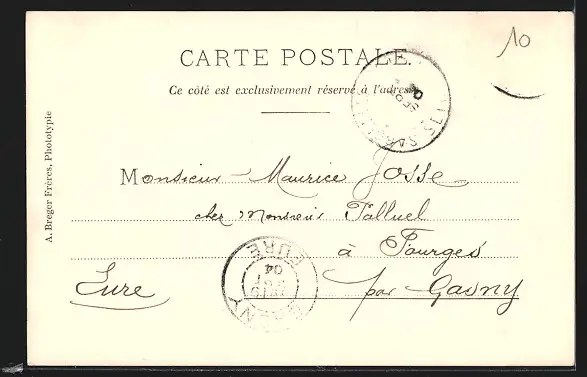 10
CARTE POSTALE.
Ce côté est exclusivement réservé à l'adresse
A. Breger Frères, Phototypie
Monsieur Maurice Josse
chez Monsieur Talluel
à Fourges
par Gasny
Eure
GASNY
EURE
04